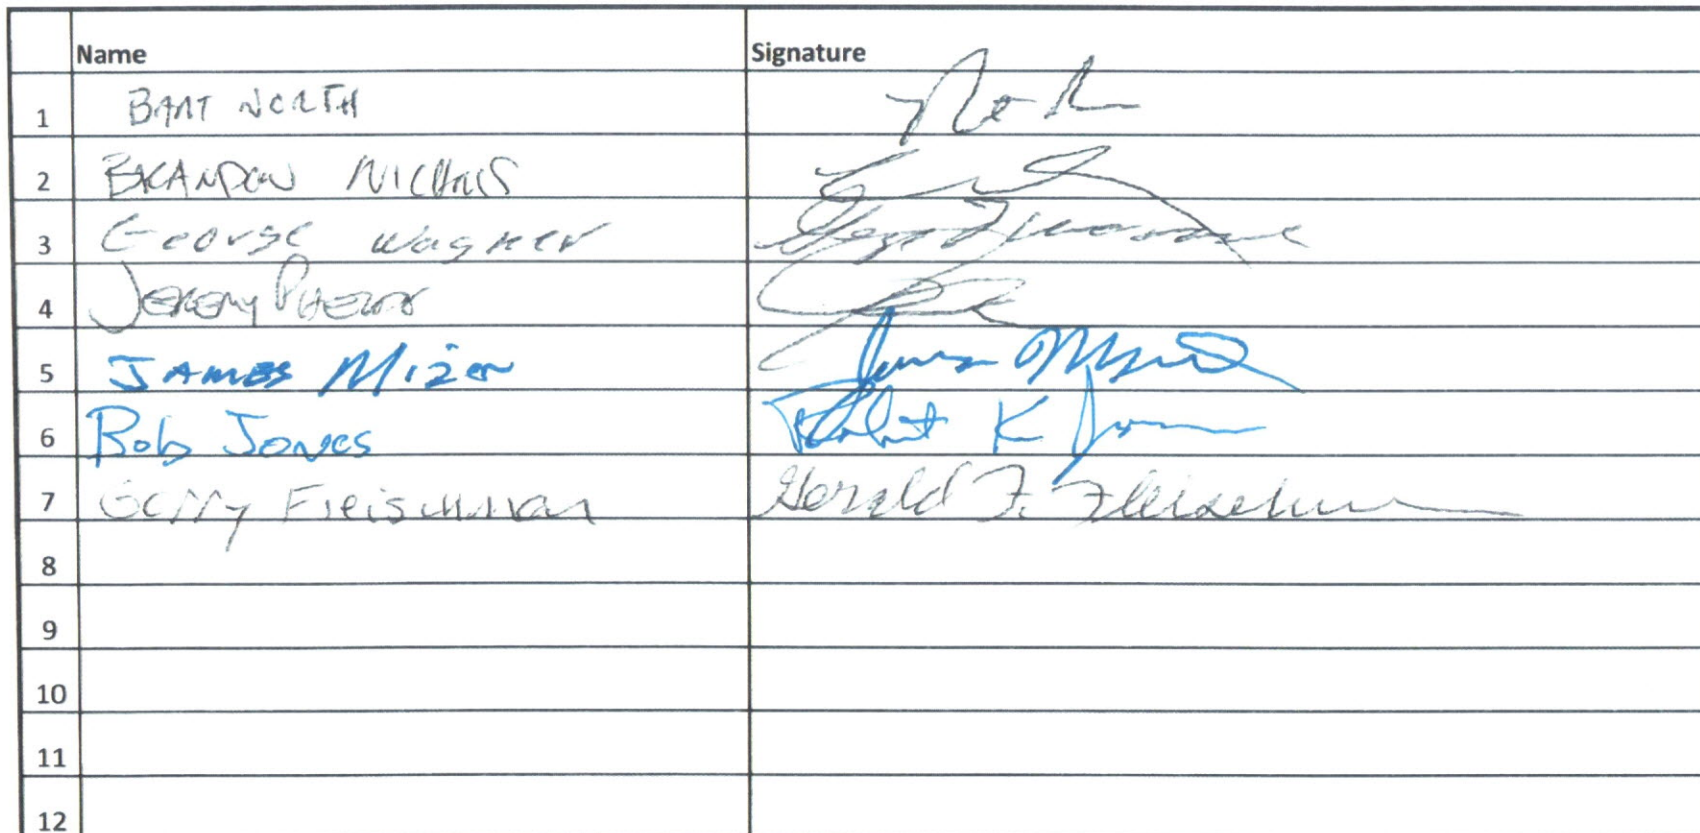 Name Signature
1 BART NORTH
2 BRANDON NICHOLS
3 George Wagner George Wagner
4 JEREMY
5 JAMES Mizer James
6 Bob Jones Robert K Jones
7 Gerry Fleischman Gerald F. Fleischman
8
9
10
11
12